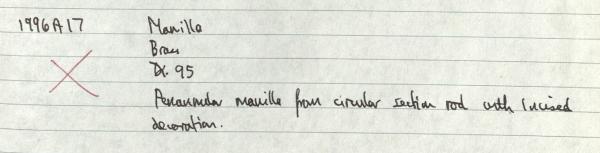 1996A17 Manilla
Brass
Dx. 95
Penannular manilla from circular section rod with incised
decoration.